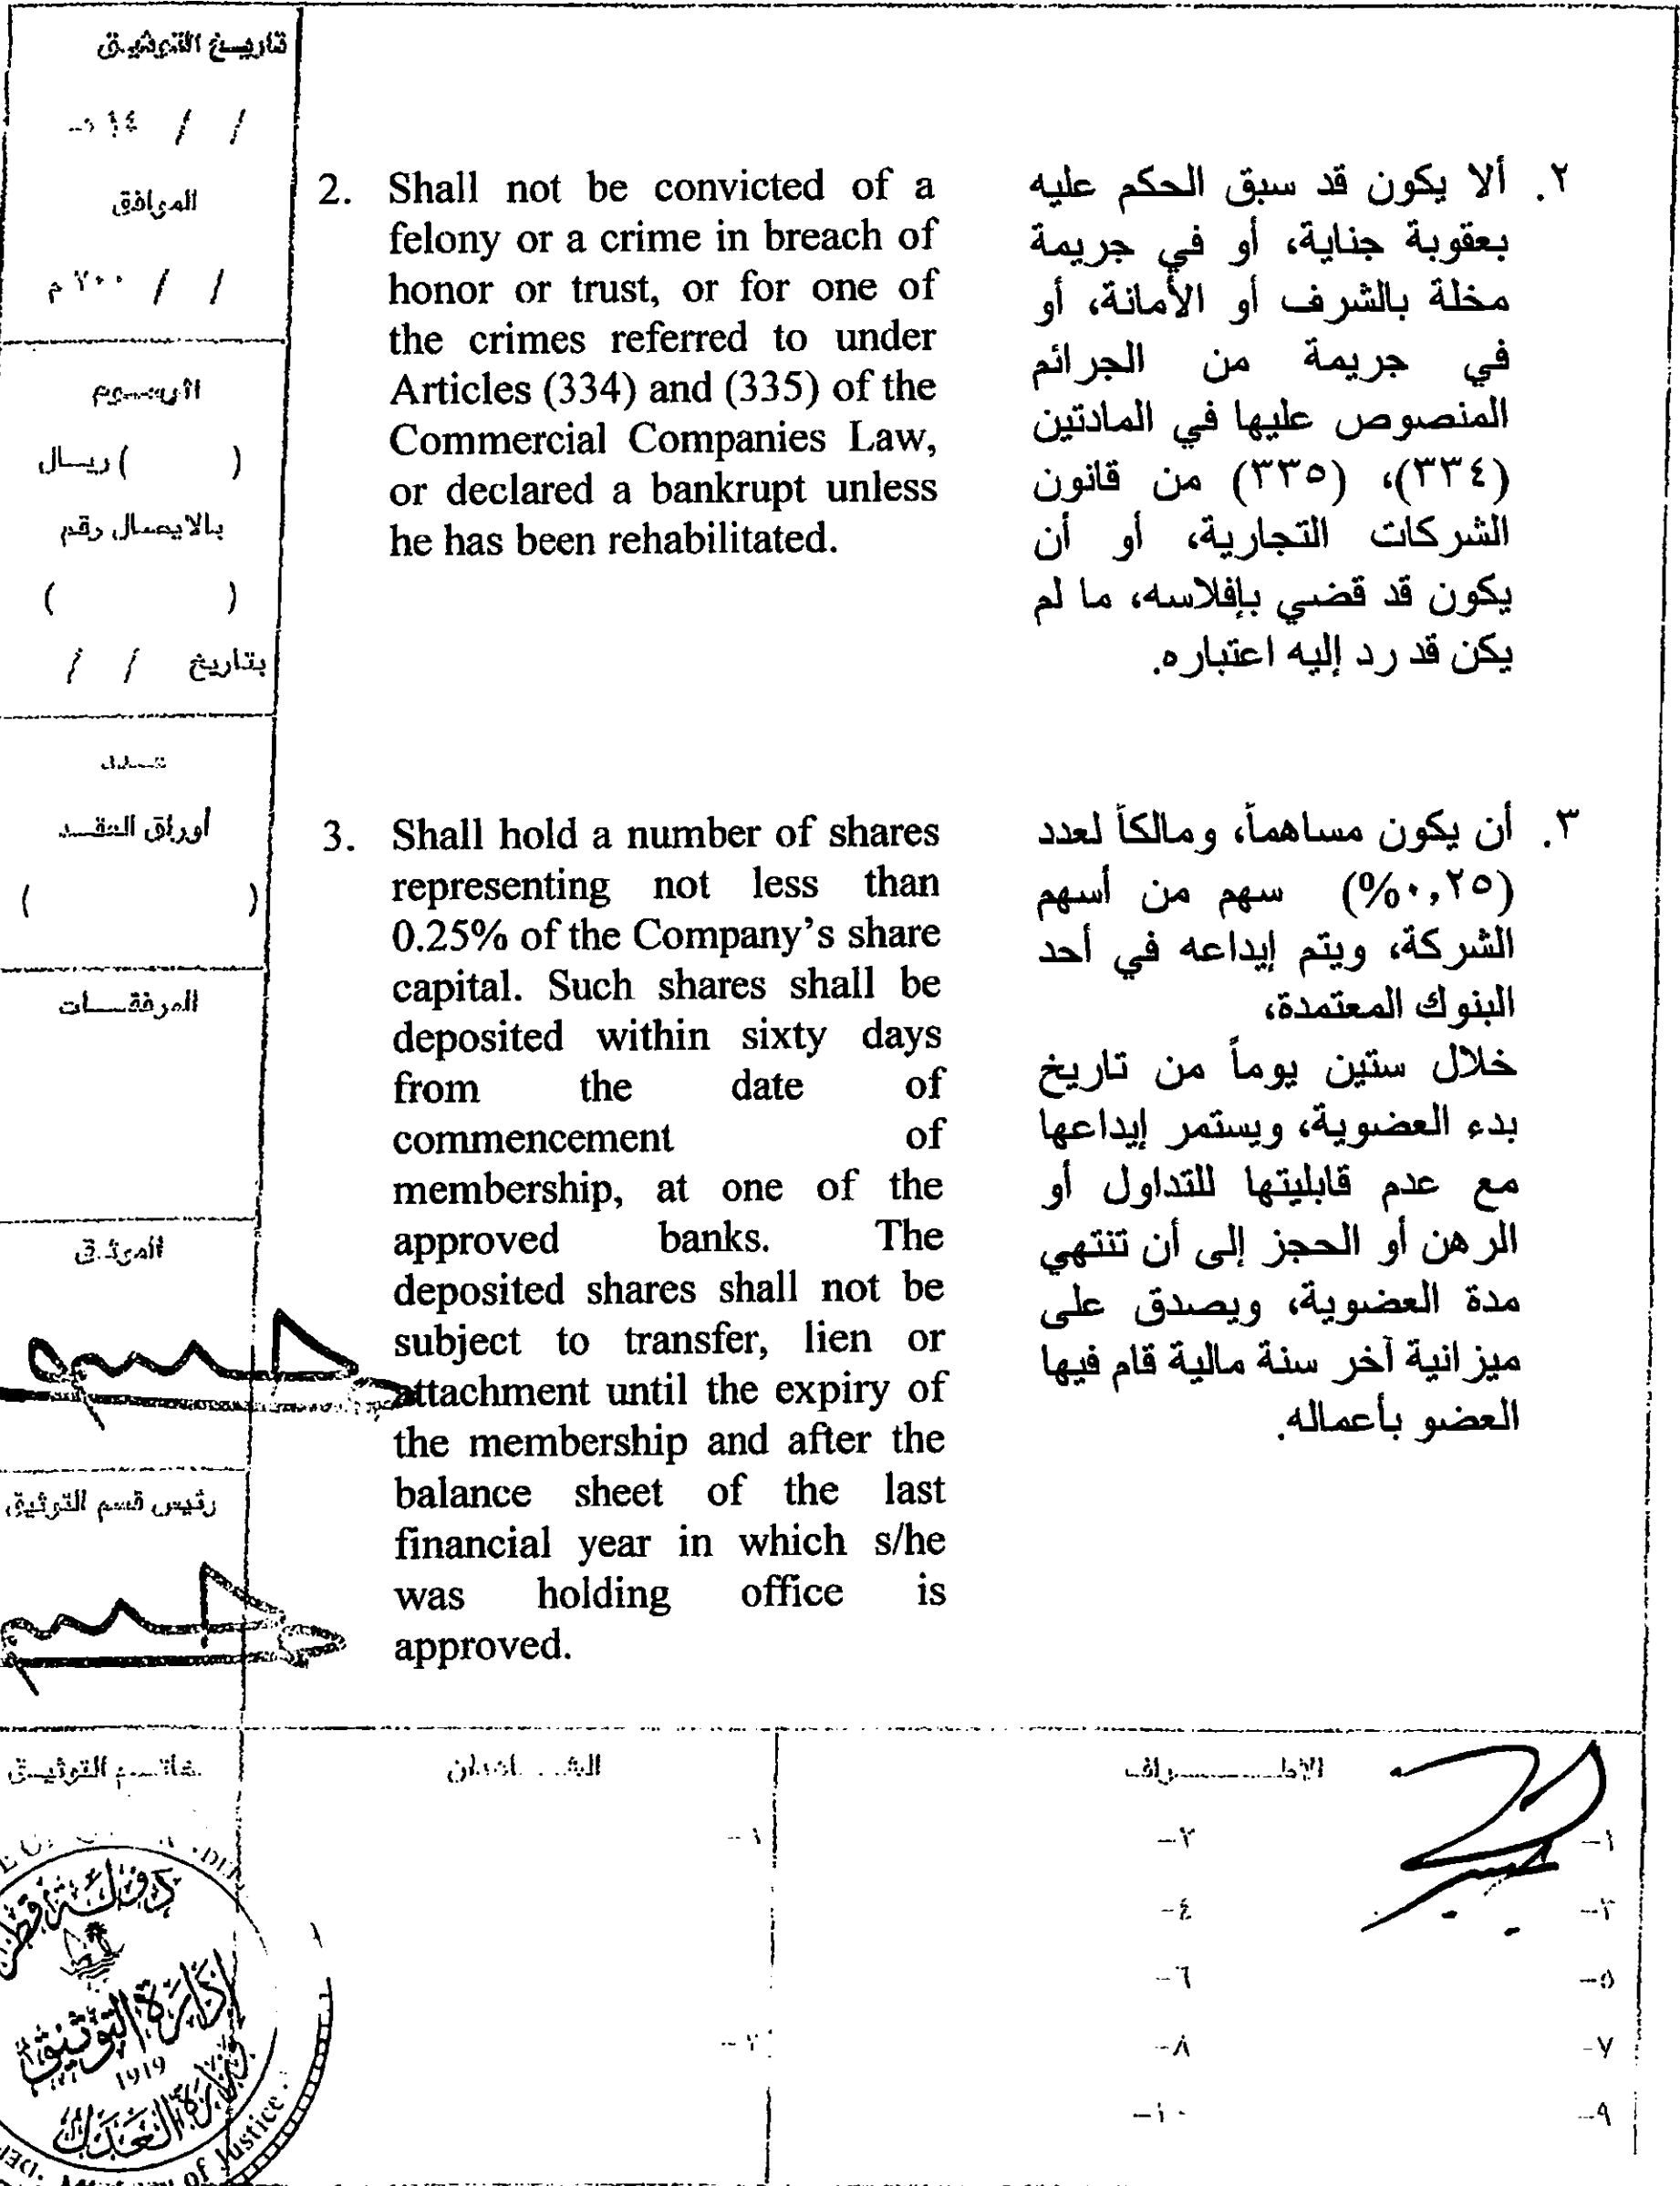 تاريخ التوثيق
/ / ١٤ هـ
الموافق
/ / ٢٠٠ م
الرسوم
( ) ريال
بالايصال رقم
( )
بتاريخ / /
عدد
أوراق العقد
( )
المرفقات
الموثق
رئيس قسم التوثيق
2. Shall not be convicted of a
felony or a crime in breach of
honor or trust, or for one of
the crimes referred to under
Articles (334) and (335) of the
Commercial Companies Law,
or declared a bankrupt unless
he has been rehabilitated.
3. Shall hold a number of shares
representing not less than
0.25% of the Company's share
capital. Such shares shall be
deposited within sixty days
from the date of
commencement of
membership, at one of the
approved banks. The
deposited shares shall not be
subject to transfer, lien or
attachment until the expiry of
the membership and after the
balance sheet of the last
financial year in which s/he
was holding office is
approved.
٢. ألا يكون قد سبق الحكم عليه
بعقوبة جناية، أو في جريمة
مخلة بالشرف أو الأمانة، أو
في جريمة من الجرائم
المنصوص عليها في المادتين
(٣٣٤)، (٣٣٥) من قانون
الشركات التجارية، أو أن
يكون قد قضي بإفلاسه، ما لم
يكن قد رد إليه اعتباره.
٣. أن يكون مساهماً، ومالكاً لعدد
(٠,٢٥%) سهم من أسهم
الشركة، ويتم إيداعه في أحد
البنوك المعتمدة،
خلال ستين يوماً من تاريخ
بدء العضوية، ويستمر إيداعها
مع عدم قابليتها للتداول أو
الرهن أو الحجز إلى أن تنتهي
مدة العضوية، ويصدق على
ميزانية آخر سنة مالية قام فيها
العضو بأعماله.
الأطراف
١-
٢-
٣-
٤-
٥-
٦-
٧-
٨-
٩-
١٠-
الشاهدان
١-
٢-
خاتم التوثيق
دولة قطر
إدارة التوثيق
1919
وزارة العدل
of Justice